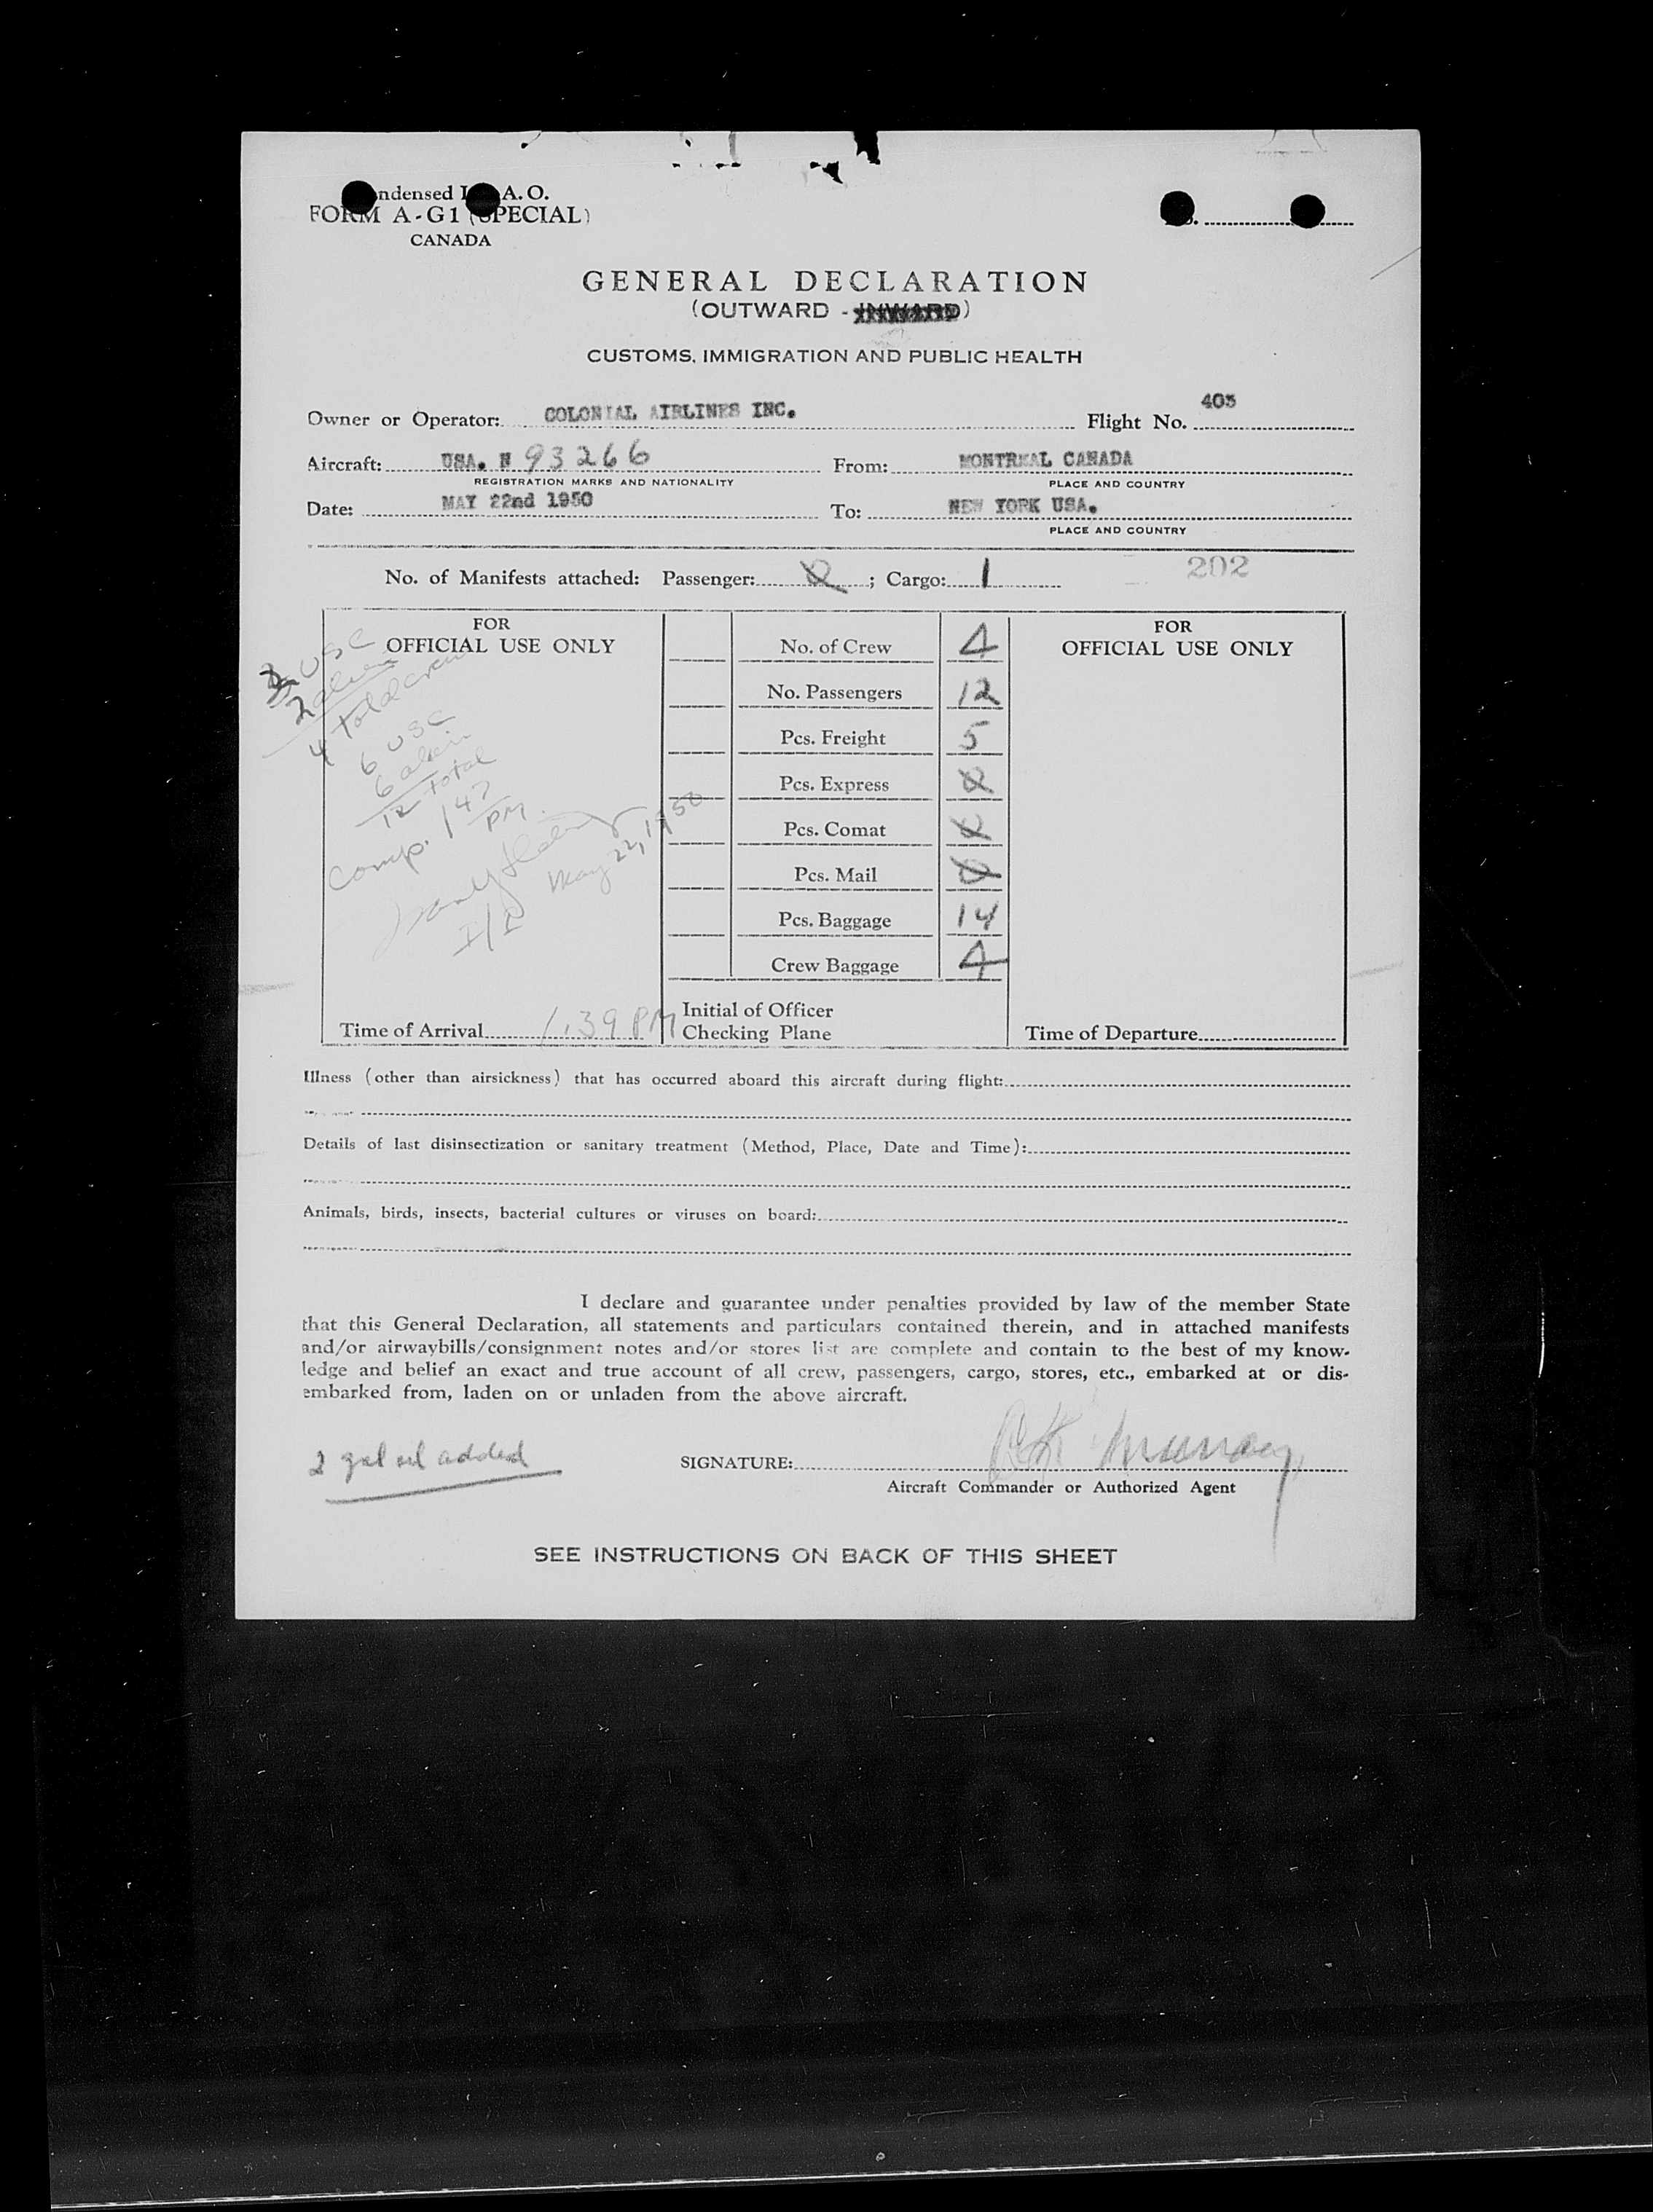 ndensed I A. O.
FORM A-G1 (SPECIAL)
CANADA
GENERAL DECLARATION
(OUTWARD - INWARD)
CUSTOMS, IMMIGRATION AND PUBLIC HEALTH
Owner or Operator: COLONIAL AIRLINES INC. Flight No. 403
Aircraft: USA. N 93266 From: MONTREAL CANADA
REGISTRATION MARKS AND NATIONALITY PLACE AND COUNTRY
Date: MAY 22nd 1950 To: NEW YORK USA.
PLACE AND COUNTRY
No. of Manifests attached: Passenger: 0 ; Cargo: 1 202
FOR
OFFICIAL USE ONLY
2 USC
2 alien
4 total crew
6 USC
6 alien
12 total
Comp. 147 PM
May 22, 1950
I/I
Time of Arrival 1.39 PM
No. of Crew 4
No. Passengers 12
Pcs. Freight 5
Pcs. Express 0
Pcs. Comat 0
Pcs. Mail 0
Pcs. Baggage 14
Crew Baggage 4
Initial of Officer
Checking Plane
FOR
OFFICIAL USE ONLY
Time of Departure
Illness (other than airsickness) that has occurred aboard this aircraft during flight:
Details of last disinsectization or sanitary treatment (Method, Place, Date and Time):
Animals, birds, insects, bacterial cultures or viruses on board:
I declare and guarantee under penalties provided by law of the member State
that this General Declaration, all statements and particulars contained therein, and in attached manifests
and/or airwaybills/consignment notes and/or stores list are complete and contain to the best of my know-
ledge and belief an exact and true account of all crew, passengers, cargo, stores, etc., embarked at or dis-
embarked from, laden on or unladen from the above aircraft.
2 gal oil added
SIGNATURE: Murray
Aircraft Commander or Authorized Agent
SEE INSTRUCTIONS ON BACK OF THIS SHEET